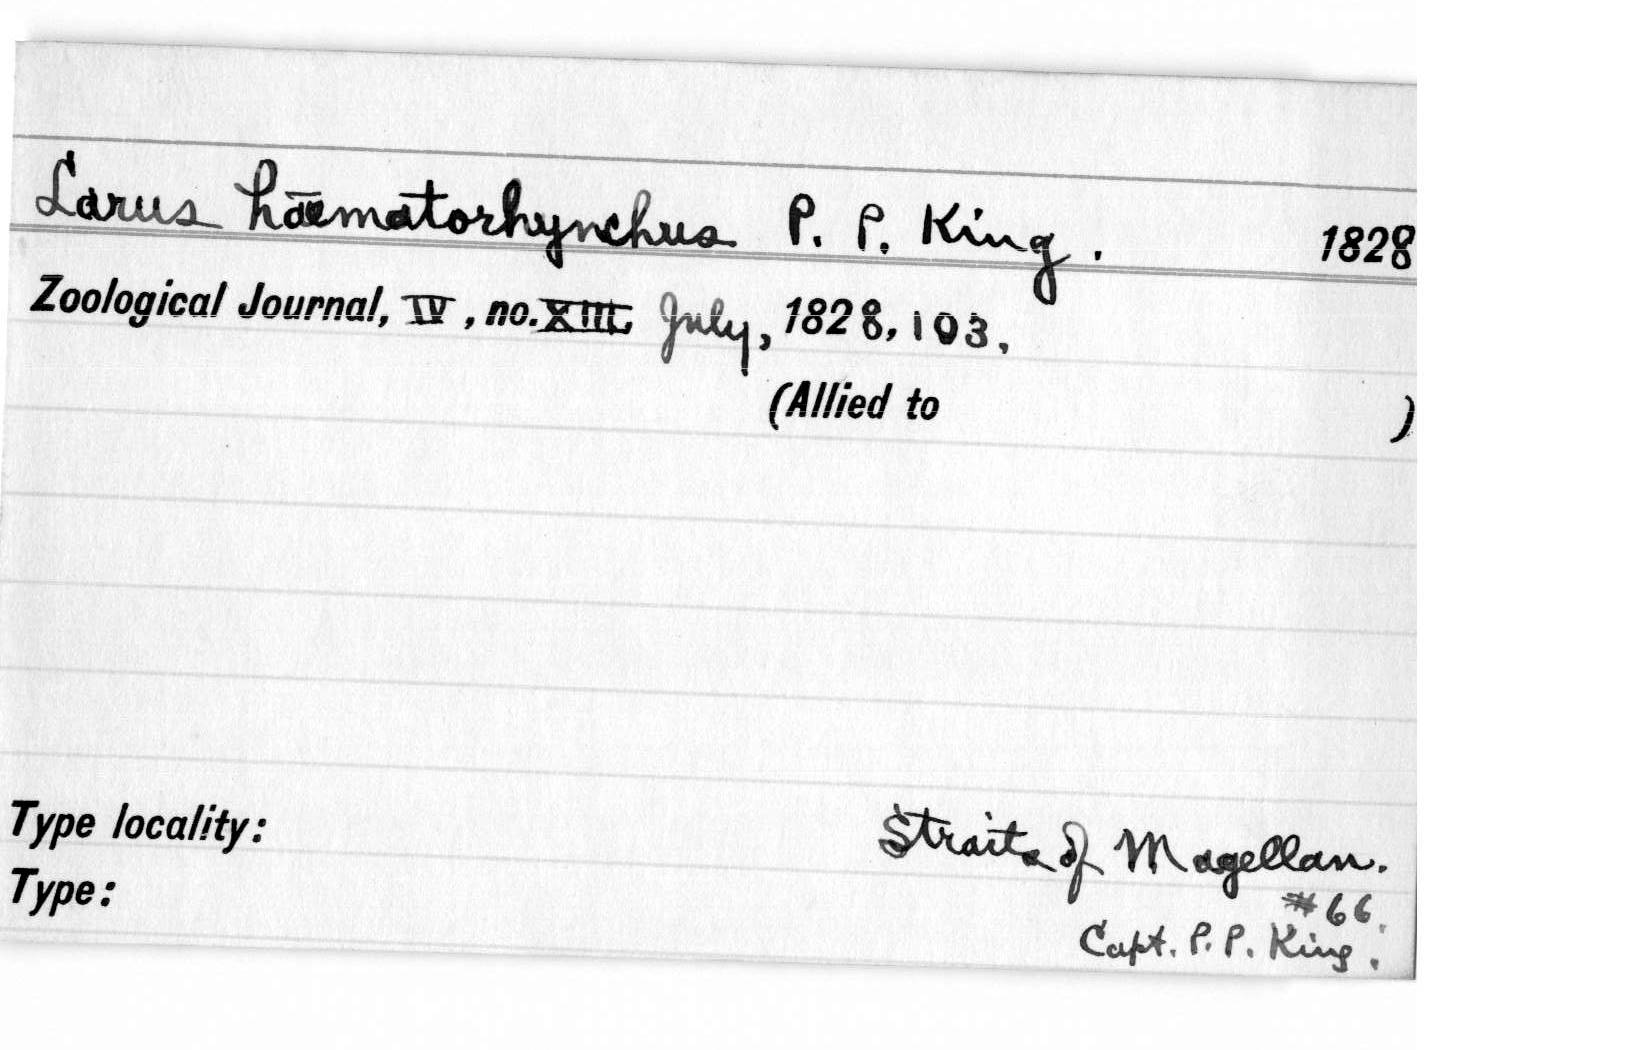 Larus hæmatorhynchus P. P. King. 1828
Zoological Journal, IV, no. XIII, July, 1828, 103.
(Allied to )
Type locality: Straits of Magellan.
Type: #66.
Capt. P. P. King.